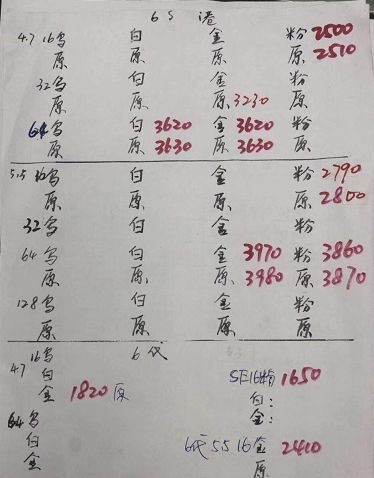 6S 港
4.7 16乌 白 金 粉 2500
原 原 原 原 2510
32乌 白 金 粉
原 原 原 3230 原
64乌 白 3620 金 3620 粉
原 原 3630 原 3630 原
5.5 16乌 白 金 粉 2790
原 原 原 原 2800
32乌 白 金 粉
64乌 白 金 3970 粉 3860
原 原 原 3980 原 3870
128乌 白 金 粉
原 原 原 原
6代
4.7 16乌
白
金 1820 原
64乌
白
金
SE16粉 1650
白:
金:
6代 5.5 16金 2410
原